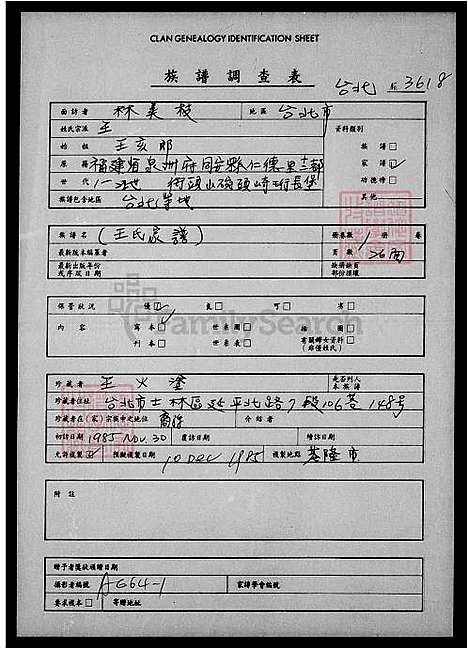 CLAN GENEALOGY IDENTIFICATION SHEET
族譜調查表
台北 3618
面訪者 林美枝 地區 台北市
姓氏宗派 王 資料類別
始祖 王亥郎 族譜
原籍 福建省泉州府同安縣仁德里 家譜
世代
族譜包含地區 台北等地 其他
族譜名 (王氏家譜) 冊卷數 1 冊 卷
最新版本編纂者 頁數 26面
最新出版年份 缺冊缺頁
或序版日期
保管狀況 優 良 可 劣
內容 寫本 世系圖 插圖
刊本 世系表 有關婦女資料
FamilySearch
珍藏者 王火塗 是否列入
本族譜
珍藏者住址 台北市士林區延平北路7段106巷148号
珍藏者在(家)宗族中之地位 裔孫 介紹者
初訪日期 1985 Nov. 30 覆訪日期 續訪日期
允許複製 預擬複製日期 10 DEC 1985 複製地點 基隆市
附註
贈予者獎狀頒贈日期
攝影者編號 AG64-1 家譜學會編號
要求複本 寄贈地址